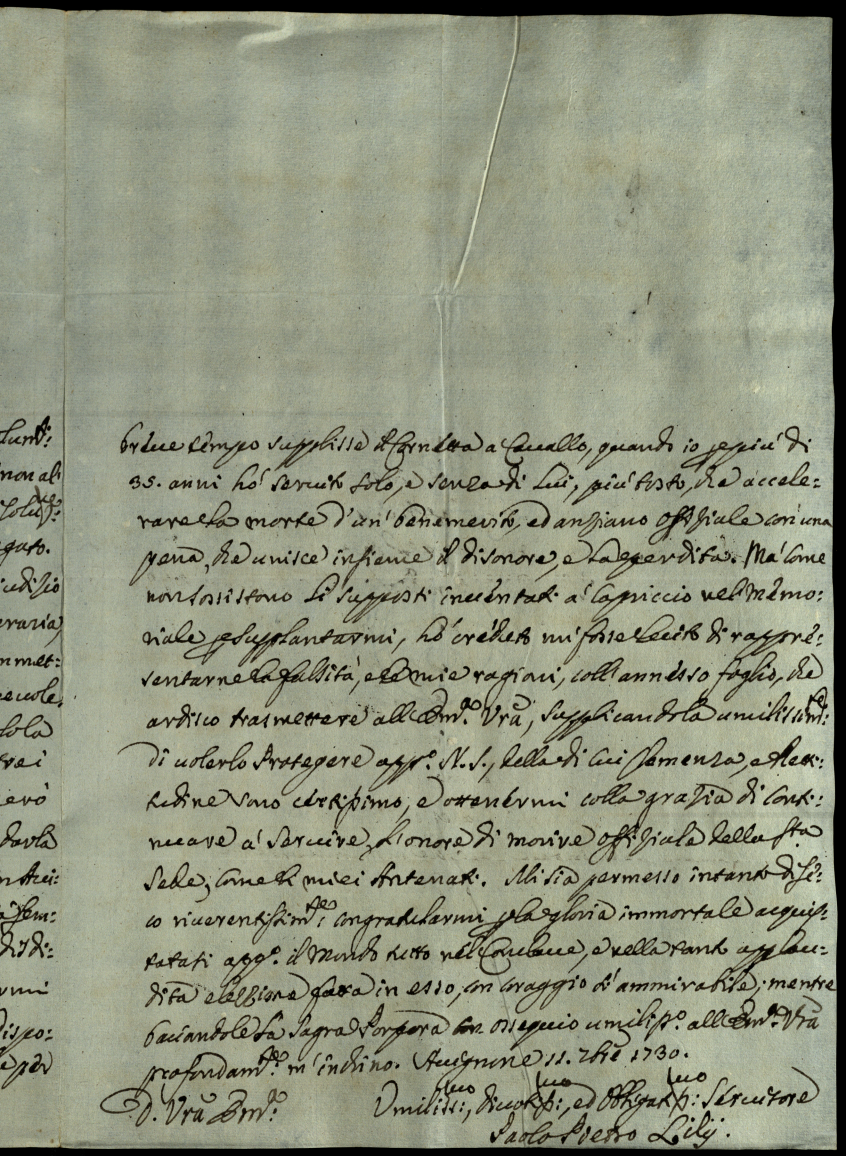 breue tempo supplisse il Cornetta a Cauallo, quando io p più di
35. anni hò seruito solo, e senza di Lui, più tosto, che accele-
rare la morte d'un' benemerito, ed anziano Offiziale con una
pena, che unisce insieme il disonore, e la perdita. Mà come
non sossistono li supposti inuentati à capriccio nel memo:
riale p supplantarmi, hò creduto mi fosse lecito di rappre-
sentarne la falsità, e le mie ragioni, coll'annesso foglio, che
ardisco trasmettere all'Emza Vra, supplicandola umilissimte
di uolerlo Proteggere appo N. S., della di cui Clemenza, e Retti-
tudine sono certissimo, e ottenermi colla grazia di conti-
nuare à seruire, l'onore di morire Offiziale della Sta
Sede, come li miei Antenati. Mi sia permesso intanto
riuerentissimte congratularmi p la gloria immortale acquis-
tatasi appo il Mondo tutto nel Conclaue, e nella tanto applau-
dita elezzione fatta in esso, con coraggio sì ammirabile; mentre
baciandole la Sagra Porpora con ossequio umilisso all'Emza Vra
profondamte m'inchino. Auignone 11. 7bre 1730.
D. Vra Emza
Umiliss:mo, diuotiss:mo, ed Obbligatiss:mo Seruitore
Paolo Pietro Lilij.
lunt:
non ab
gato.
iudizio
eraria,
mmet:
sola
darla
dispo:
e per